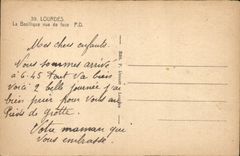 39. LOURDES.
La Basilique vue de face P.D.
Mes chers enfants.
Nous sommes arrivé
à 6.45 Tout va bien
voici 2 belle journée j'ai
bien prier pour vous au
Pieds de grotte.
Votre maman que
vous embrasse.
Edit. P. Doucet Lourdes